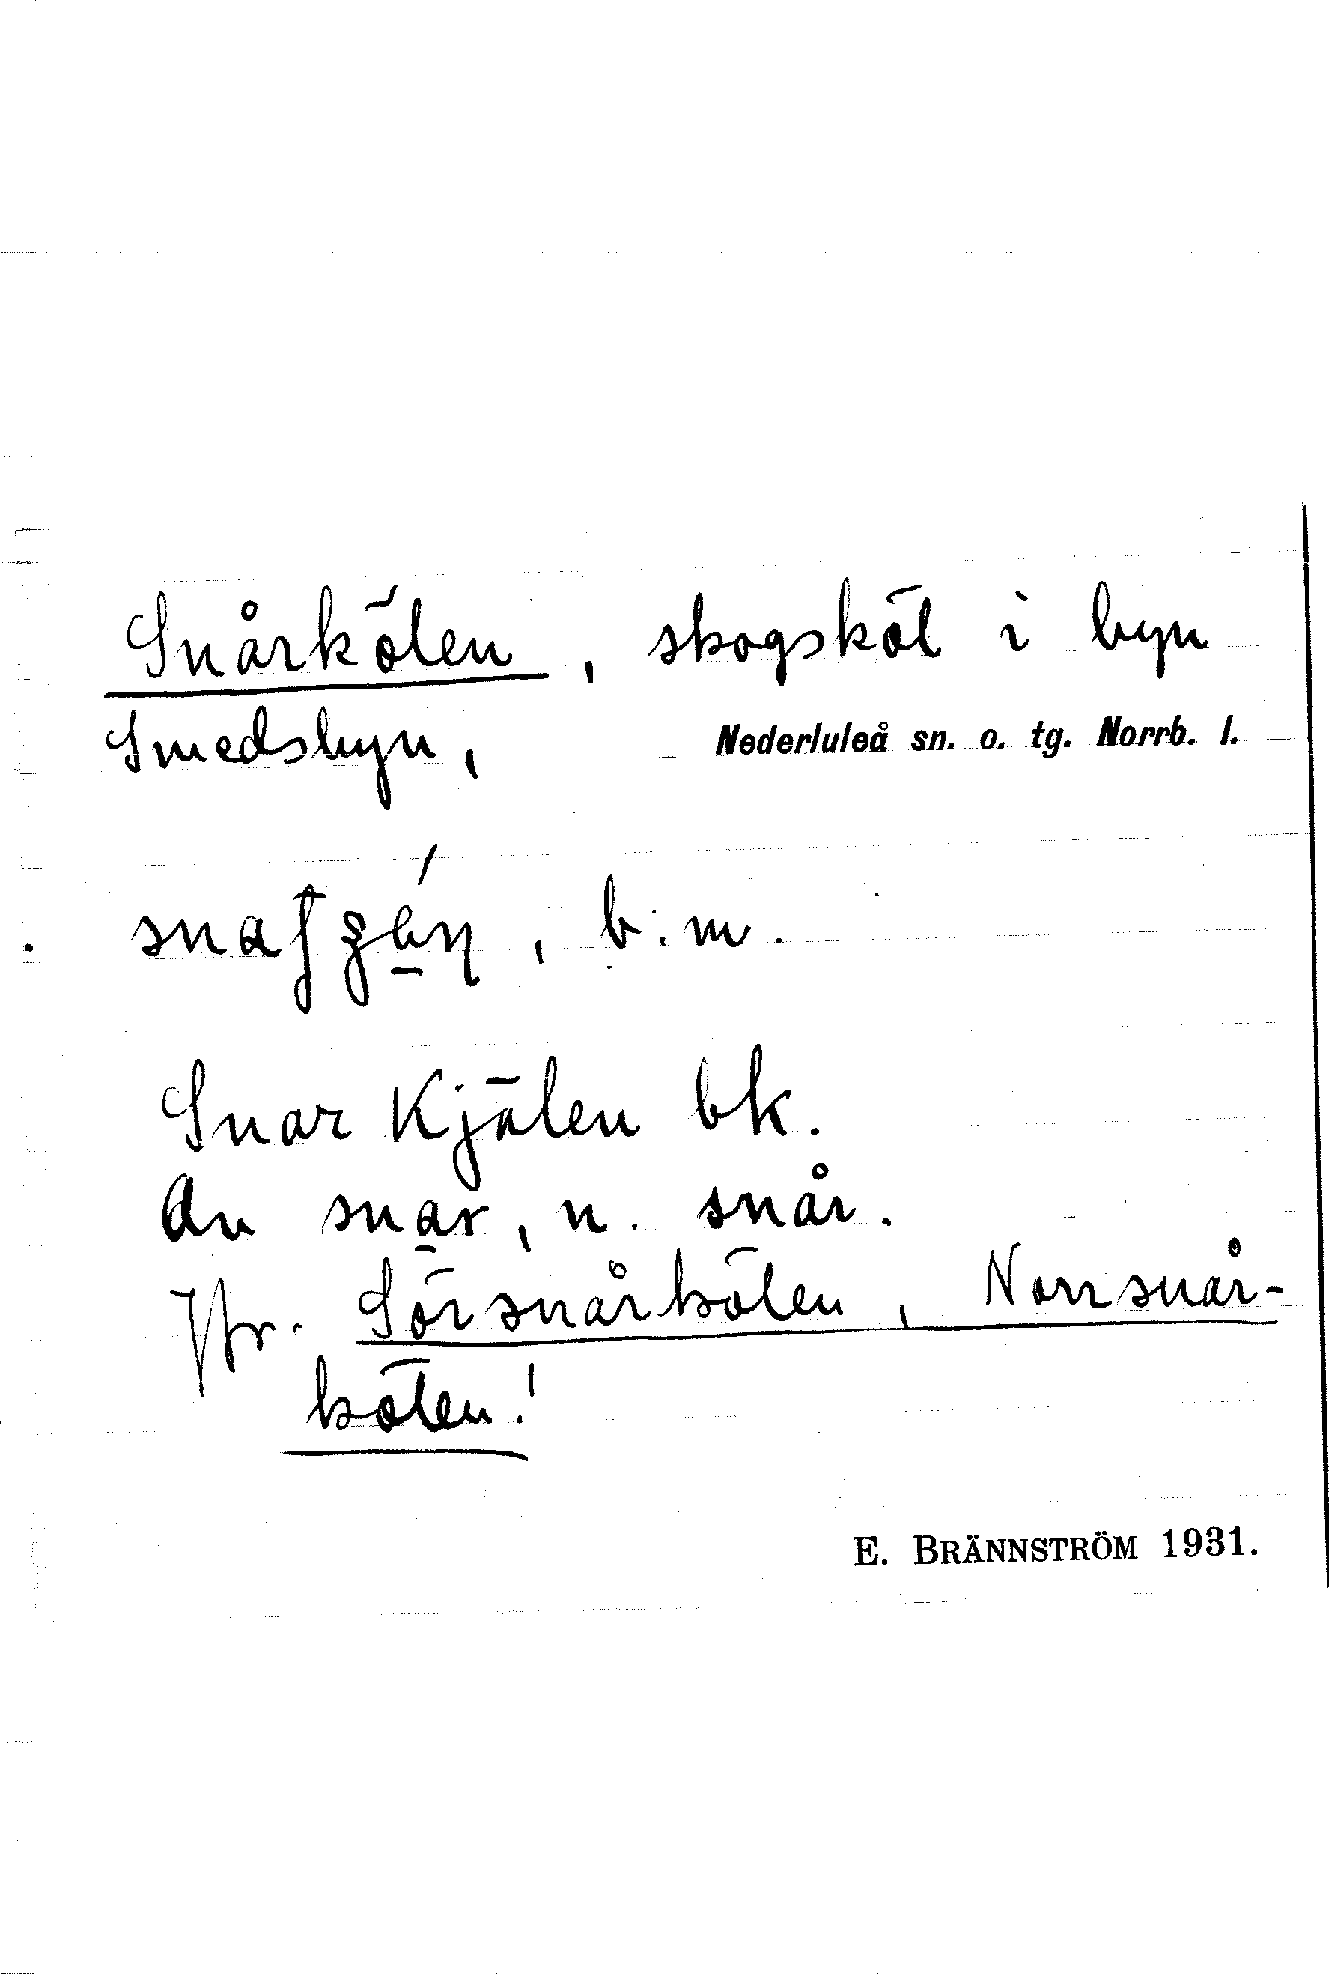 Snårkölen, skogsköl i byn
Smedsbyn, Nederluleå sn. o. tg. Norrb. l.
, b. m.
Snar Kjölen bk.
Av snar, n. snår.
Jfr. Sörsnårkölen, Norrsnår-
kölen!
E. BRÄNNSTRÖM 1931.